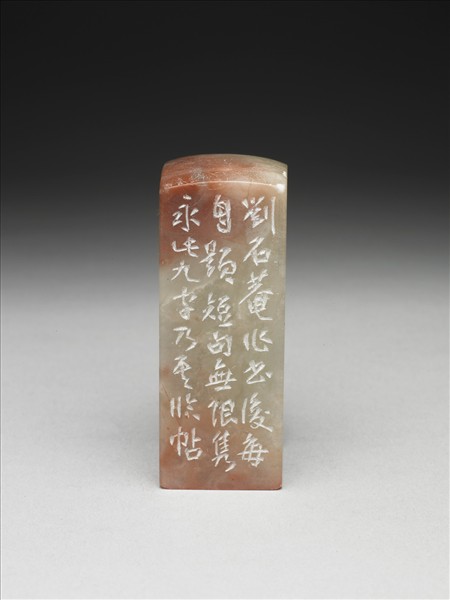 劉石菴作書後每
自題短句無限雋
永此九字乃其臨帖